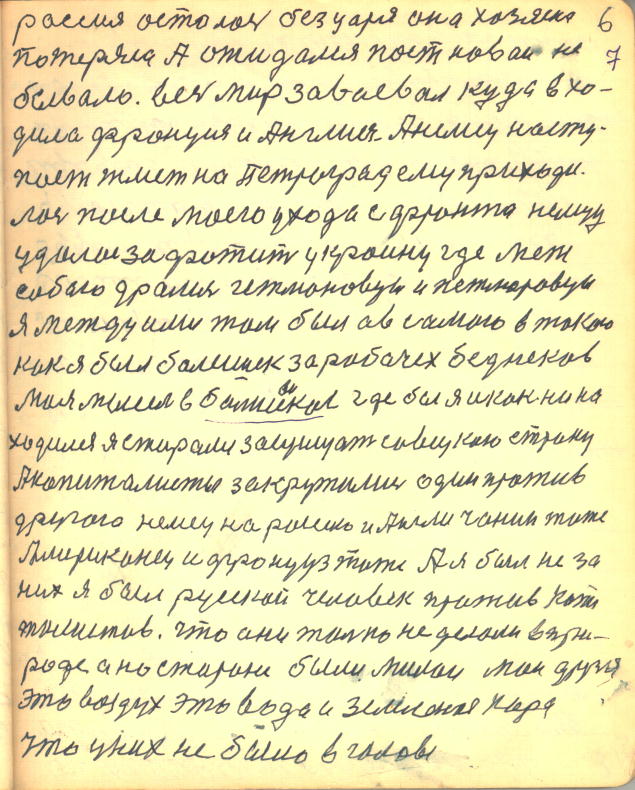 россия осталос без царя она хозяена 6
потеряла А ожидался пост новаи не 7
бывало. вес мир завоевал куда вхо-
дила франция и Англия. А немец насту-
пает жмет на Петроград ему приходи.
лос после моего ухода с фронта немцу
удалос захватит украину где меж
собаю дралис гетмановцы и петлюровцы
я между ими там был а в самого в такою
как я был балшиек за рабачех беднеков
моя жыл в балшеком где был и как ни на
ходился я старалс защищат совецкою страну
А капиталисты закрутилис один против
другого немец на росию и Англичанин тоже
Американец и француз тоже А я был не за
них я был русской человек против Капи
талистов. что они толко не делали в при-
роде а на стороне были милаи маи друзя
это воздух это вода и земля
что у них не было в голове